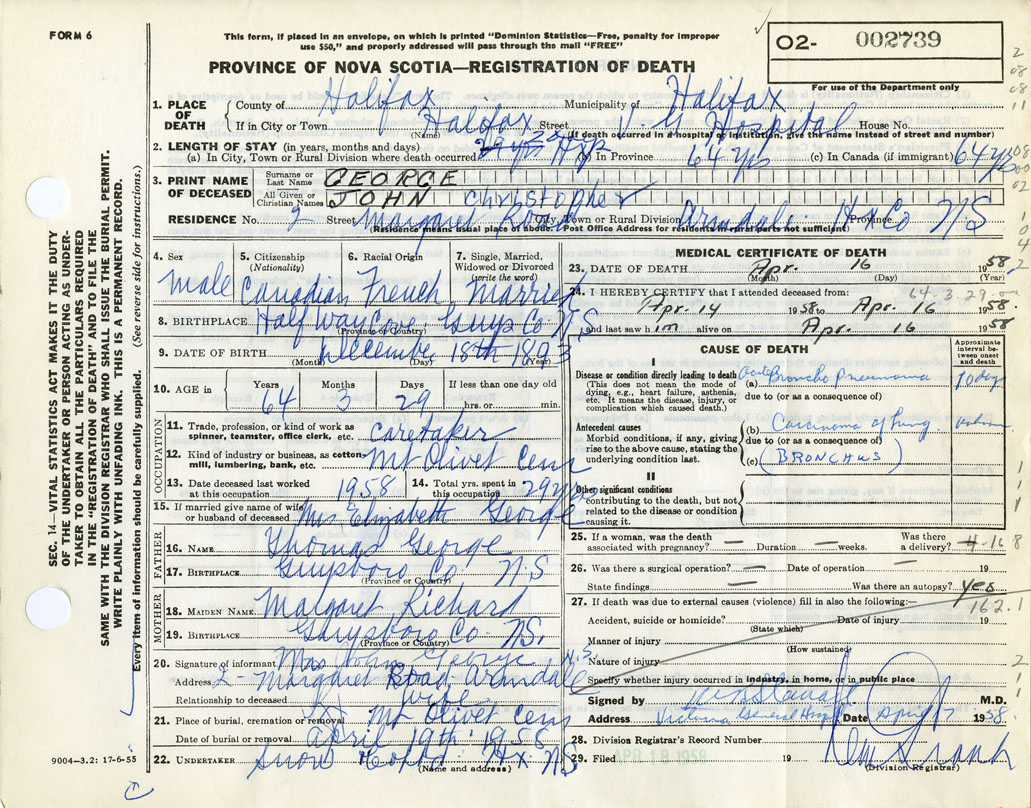 FORM 6
This form, if placed in an envelope, on which is printed "Dominion Statistics—Free, penalty for improper
use $50," and properly addressed will pass through the mail "FREE"
PROVINCE OF NOVA SCOTIA—REGISTRATION OF DEATH
O2- 002739
For use of the Department only
SEC. 14—VITAL STATISTICS ACT MAKES IT THE DUTY
OF THE UNDERTAKER OR PERSON ACTING AS UNDER-
TAKER TO OBTAIN ALL THE PARTICULARS REQUIRED
IN THE "REGISTRATION OF DEATH" AND TO FILE THE
SAME WITH THE DIVISION REGISTRAR WHO SHALL ISSUE THE BURIAL PERMIT.
WRITE PLAINLY WITH UNFADING INK. THIS IS A PERMANENT RECORD.
Every item of information should be carefully supplied. (See reverse side for instructions.)
1. PLACE OF DEATH County of Halifax Municipality of Halifax
If in City or Town Halifax Street V. G. Hospital House No.
(Name) (If death occurred in a hospital or institution, give the name instead of street and number)
2. LENGTH OF STAY (in years, months and days)
(a) In City, Town or Rural Division where death occurred (b) In Province 64 yrs (c) In Canada (if immigrant) 64 yrs
3. PRINT NAME OF DECEASED Surname or Last Name GEORGE
All Given or Christian Names JOHN Christopher
RESIDENCE No. 2 Street Margaret Road City, Town or Rural Division Armdale Hx Co Province N S
(Residence means usual place of abode. Post Office Address for residents of rural parts not sufficient)
4. Sex Male
5. Citizenship (Nationality) Canadian
6. Racial Origin French
7. Single, Married, Widowed or Divorced (write the word) Married
8. BIRTHPLACE Half Way Cove Guys Co N.S
(Province or Country)
9. DATE OF BIRTH December 18th 1893
(Month) (Day) (Year)
10. AGE in Years 64 Months 3 Days 29 If less than one day old hrs. or min.
OCCUPATION
11. Trade, profession, or kind of work as spinner, teamster, office clerk, etc. Caretaker
12. Kind of industry or business, as cotton-mill, lumbering, bank, etc. Mt Olivet Cem
13. Date deceased last worked at this occupation 1958 14. Total yrs. spent in this occupation 29 yrs
15. If married give name of wife or husband of deceased Mrs Elizabeth George
FATHER
16. NAME Thomas George
17. BIRTHPLACE Guysboro Co N.S
(Province or Country)
MOTHER
18. MAIDEN NAME Margaret Richard
19. BIRTHPLACE Guysboro Co- NS.
(Province or Country)
20. Signature of informant Mrs John George
Address 2- Margaret Road Armdale N.S.
Relationship to deceased wife
21. Place of burial, cremation or removal Mt Olivet Cem
Date of burial or removal April 19th 1958
22. UNDERTAKER Snow Co Ltd Hx NS
(Name and address)
9004—3.2: 17-6-55
MEDICAL CERTIFICATE OF DEATH
23. DATE OF DEATH Apr. 16 1958
(Month) (Day) (Year)
64 3 29
24. I HEREBY CERTIFY that I attended deceased from:
Apr. 14 1958 to Apr. 16 1958
and last saw him alive on Apr. 16 1958
CAUSE OF DEATH
Approximate interval between onset and death
I
Disease or condition directly leading to death
(This does not mean the mode of dying, e.g., heart failure, asthenia, etc. It means the disease, injury, or complication which caused death.)
(a) Acute Broncho Pneumonia 10 days
due to (or as a consequence of)
Antecedent causes
Morbid conditions, if any, giving rise to the above cause, stating the underlying condition last.
(b) Carcinoma of lung.
due to (or as a consequence of)
(c) (BRONCHUS)
II
Other significant conditions
contributing to the death, but not related to the disease or condition causing it.
25. If a woman, was the death associated with pregnancy? — Duration — weeks. Was there a delivery? 4-16 8
26. Was there a surgical operation? — Date of operation —
State findings — Was there an autopsy? Yes
27. If death was due to external causes (violence) fill in also the following:— 162.1
Accident, suicide or homicide? Date of injury 19
(State which)
Manner of injury
(How sustained)
Nature of injury
Specify whether injury occurred in industry, in home, or in public place
Signed by M.D.
Address Victoria General Hosp Date April 17 1958.
28. Division Registrar's Record Number
29. Filed APR 18 1958 19
(Division Registrar)